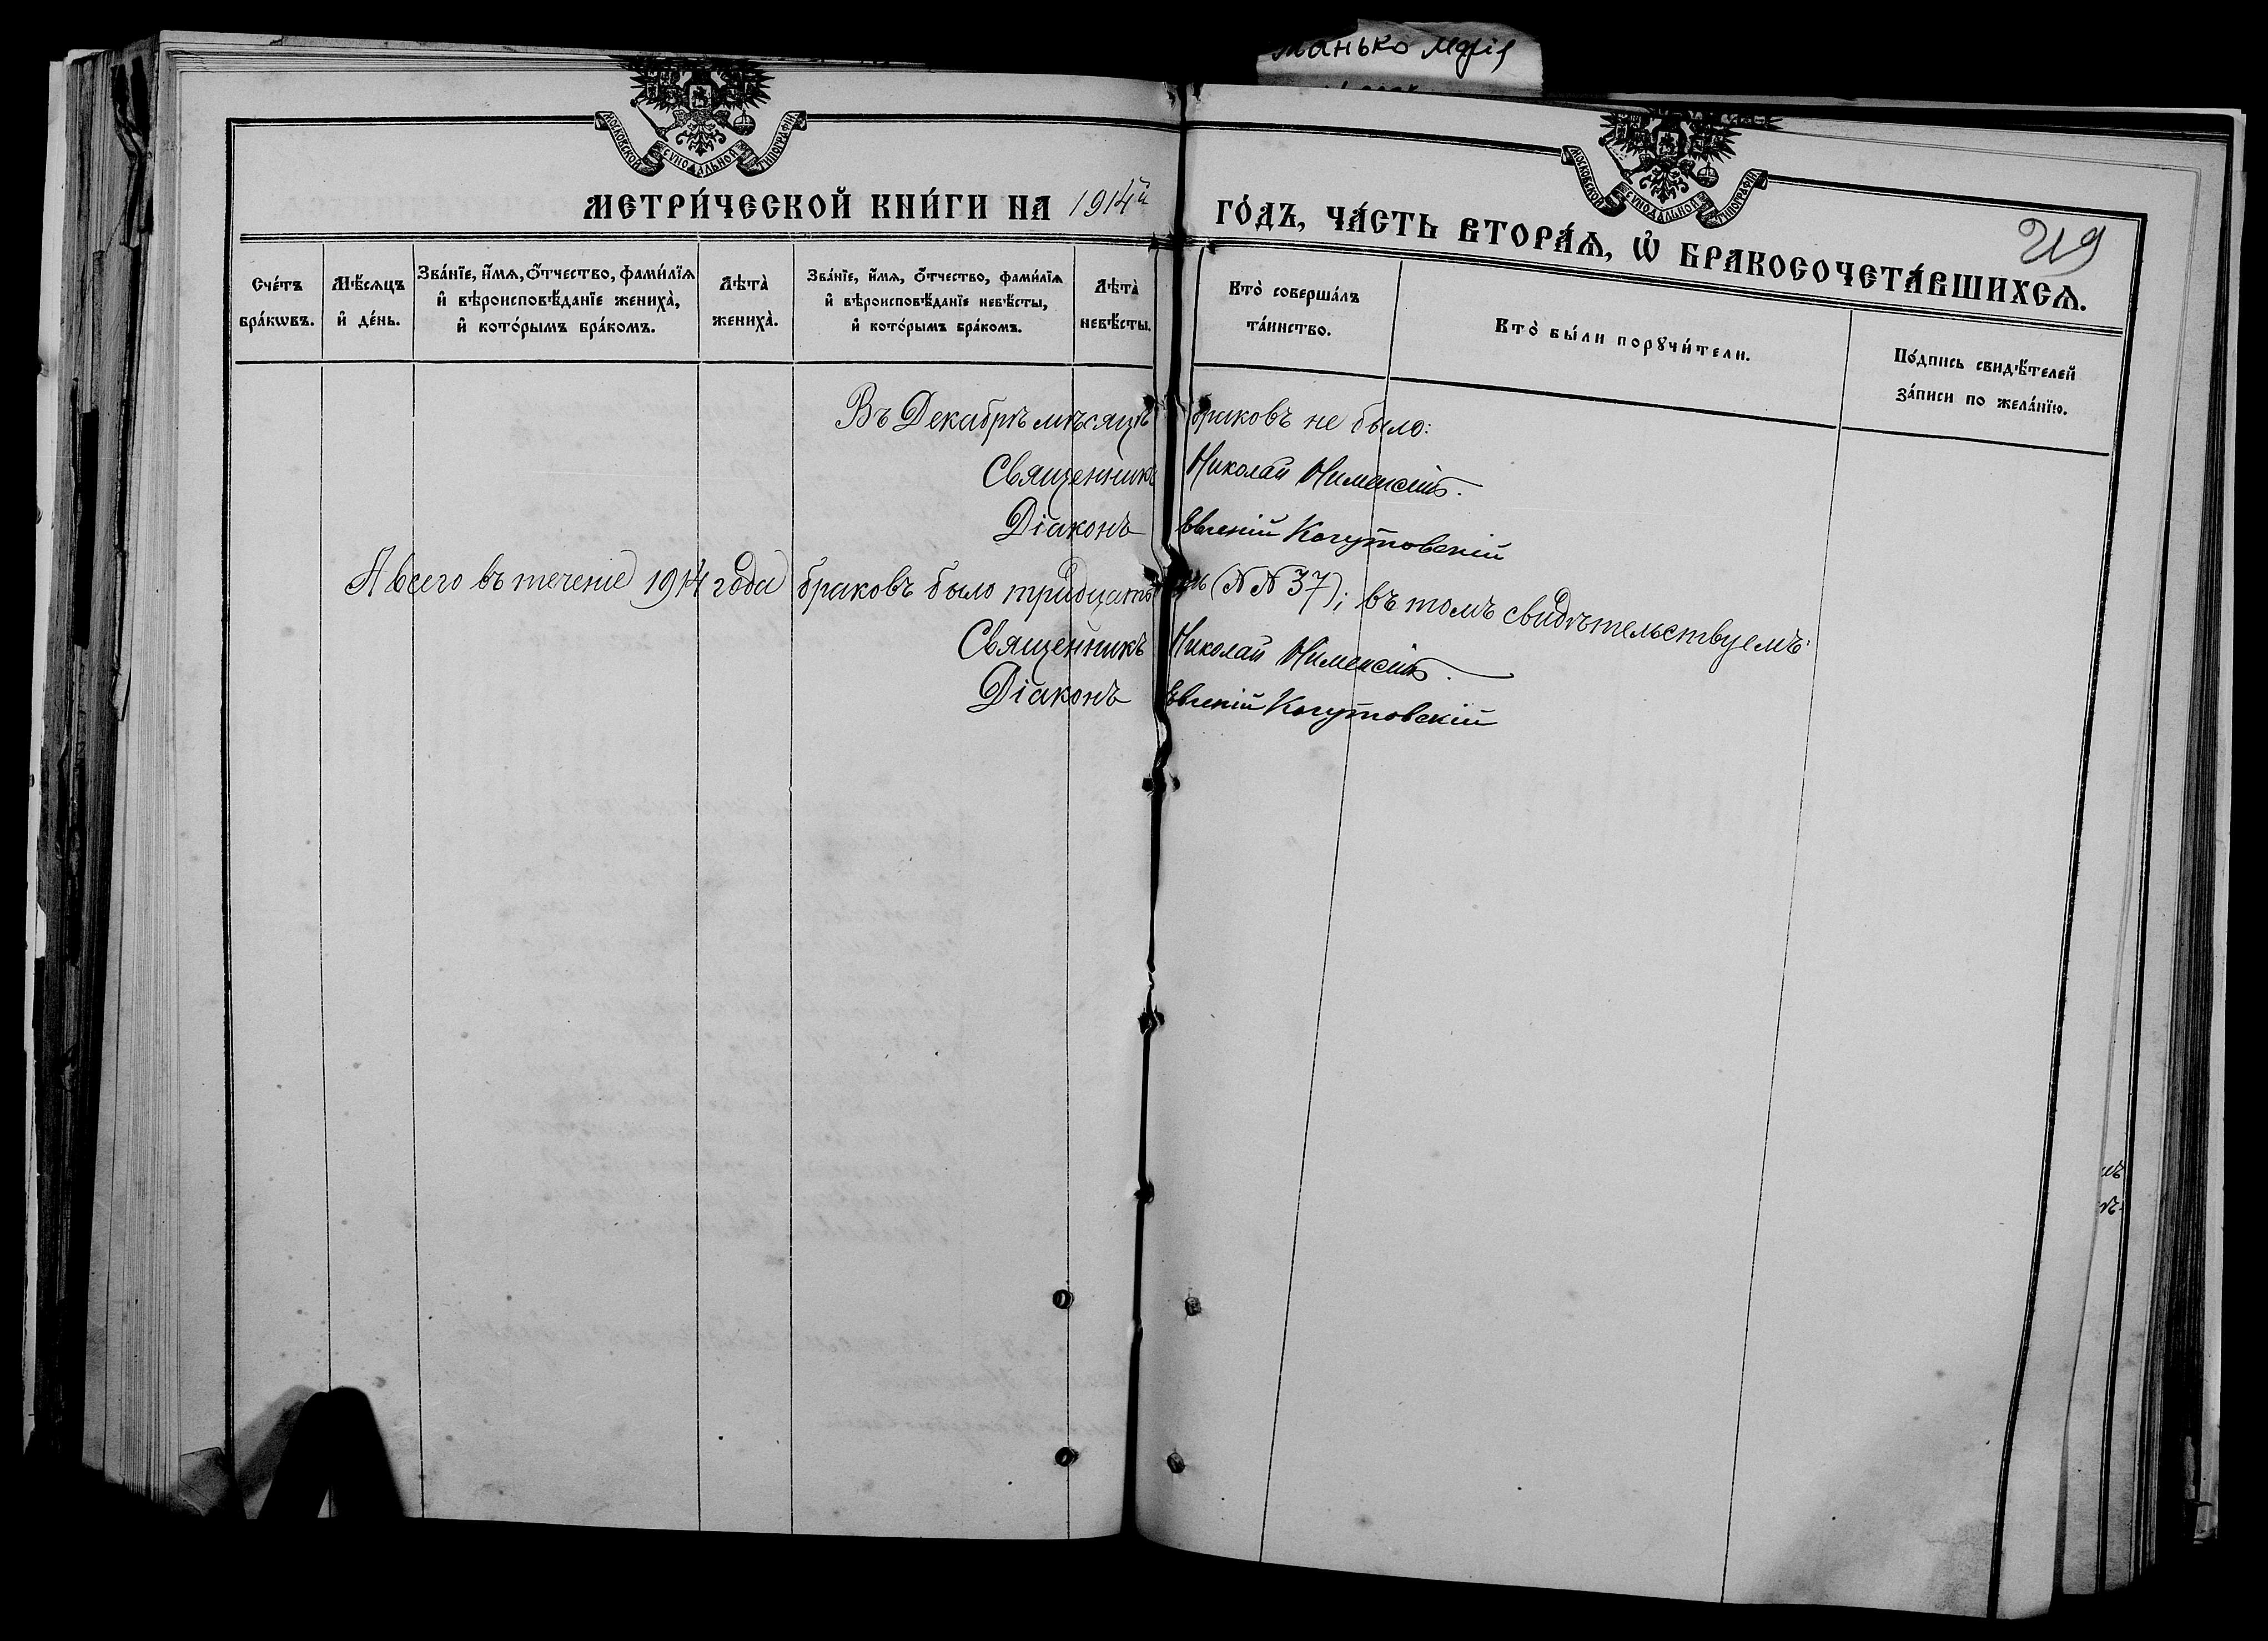 Манько Марія
МОСКОВСКОЙ СУНОДАЛЬНОЙ ТИПОГРАФІИ
МОСКОВСКОЙ СУНОДАЛЬНОЙ ТИПОГРАФІИ
МЕТРИ́ЧЕСКОЙ КНИ́ГИ НА 1914й ГО́ДЪ, ЧА́СТЬ ВТОРА́Ѧ, Ѡ҆ БРАКОСОЧЕТА́ВШИХСѦ.
219
Сче́тъ
бра́кѡвъ.
Мѣ́сѧцъ
и҆ де́нь.
Зва́нїе, и҆́мѧ, ѻ҆́тчество, фами́лїѧ
и҆ вѣроисповѣ́данїе жениха̀,
и҆ кото́рымъ бра́комъ.
Лѣта̀
жениха̀.
Зва́нїе, и҆́мѧ, ѻ҆́тчество, фами́лїѧ
и҆ вѣроисповѣ́данїе невѣ́сты,
и҆ кото́рымъ бра́комъ.
Лѣта̀
невѣ́сты.
Кто̀ соверша́лъ
та́инство.
Кто̀ бы́ли порꙋчи́тели.
По́дпись свидѣ́телей
за́писи по жела́нїю.
Въ Декабрѣ мѣсяцѣ браковъ не было:
Священникъ Николай
Діаконъ Евгеній Когутовскій
А всего въ теченіе 1914 года браковъ было тридцать (№№ 37); въ томъ свидѣтельствуемъ:
Священникъ Николай
Діаконъ Евгеній Когутовскій